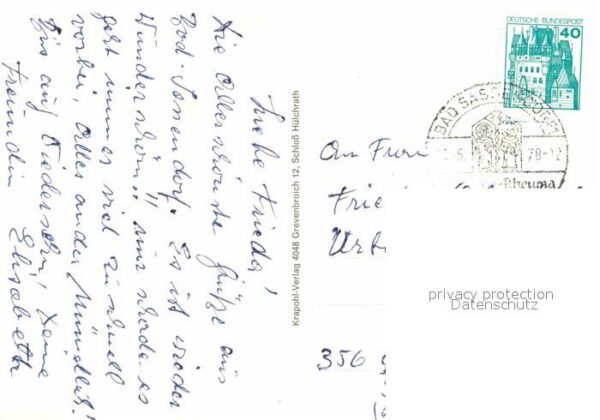 Liebe Frieda!
Die allerschönste Grüße aus
Bad Sassendorf. Es ist wieder
wunderschön!! nur schade es
geht immer viel zu schnell
vorbei, alles andere Mündlich!
Bis auf Wiedersehn! Deine
Freundin Elisabeth
Krapohl-Verlag 4048 Grevenbroich 12, Schloß Hülchrath
DEUTSCHE BUNDESPOST
40
BAD SASSENDORF
78-12
Rheuma
An Frau
Frie
356
privacy protection
Datenschutz